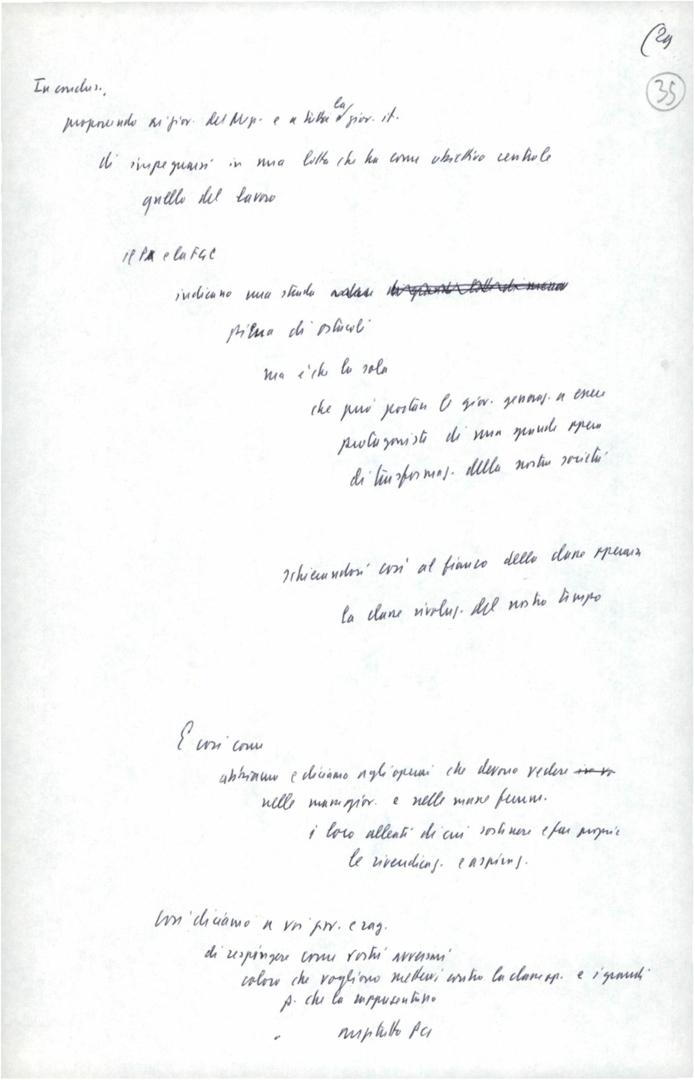 (29
35
In conclus.,
proponendo ai giov. del Mezz. e a tutta la giov. it.
di impegnarsi in una lotta che ha come obiettivo centrale
quello del lavoro
il PCI e la FGC
indicano una strada
piena di ostacoli
ma è che la sola
che può portare le giov. generaz. a essere
protagoniste di una grande opera
di trasformaz. della nostra società
schierandosi così al fianco della classe operaia
la classe rivoluz. del nostro tempo
E così come
abbiamo e diciamo agli operai che devono vedere
nelle masse giov. e nelle masse femm.
i loro alleati di cui sostenere e far proprie
le rivendicaz. e aspiraz.
Così diciamo a voi giov. e rag.
di respingere come vostri avversari
coloro che vogliono mettervi contro la classe op. e i grandi
p. che la rappresentano
anzitutto PCI